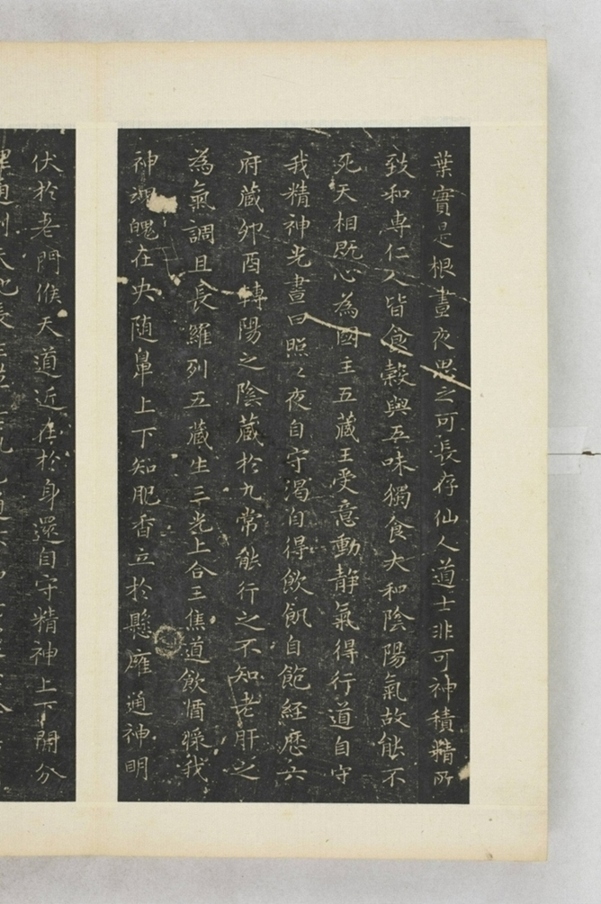 葉實是根晝夜思之可長存仙人道士非可神積精所
致和専仁人皆食穀與五味獨食大和陰陽氣故能不
死天相既心為國主五藏王受意動静氣得行道自守
我精神光晝日照々夜自守渴自得飲飢自飽経歷六
府藏卯酉轉陽之陰藏於九常能行之不知老肝之
為氣調且長羅列五藏生三光上合三焦道飲酱醬我
神魂魄在央随鼻上下知肥香立於懸廱通神明
伏於老門候天道近在於身還自守精神上下開分